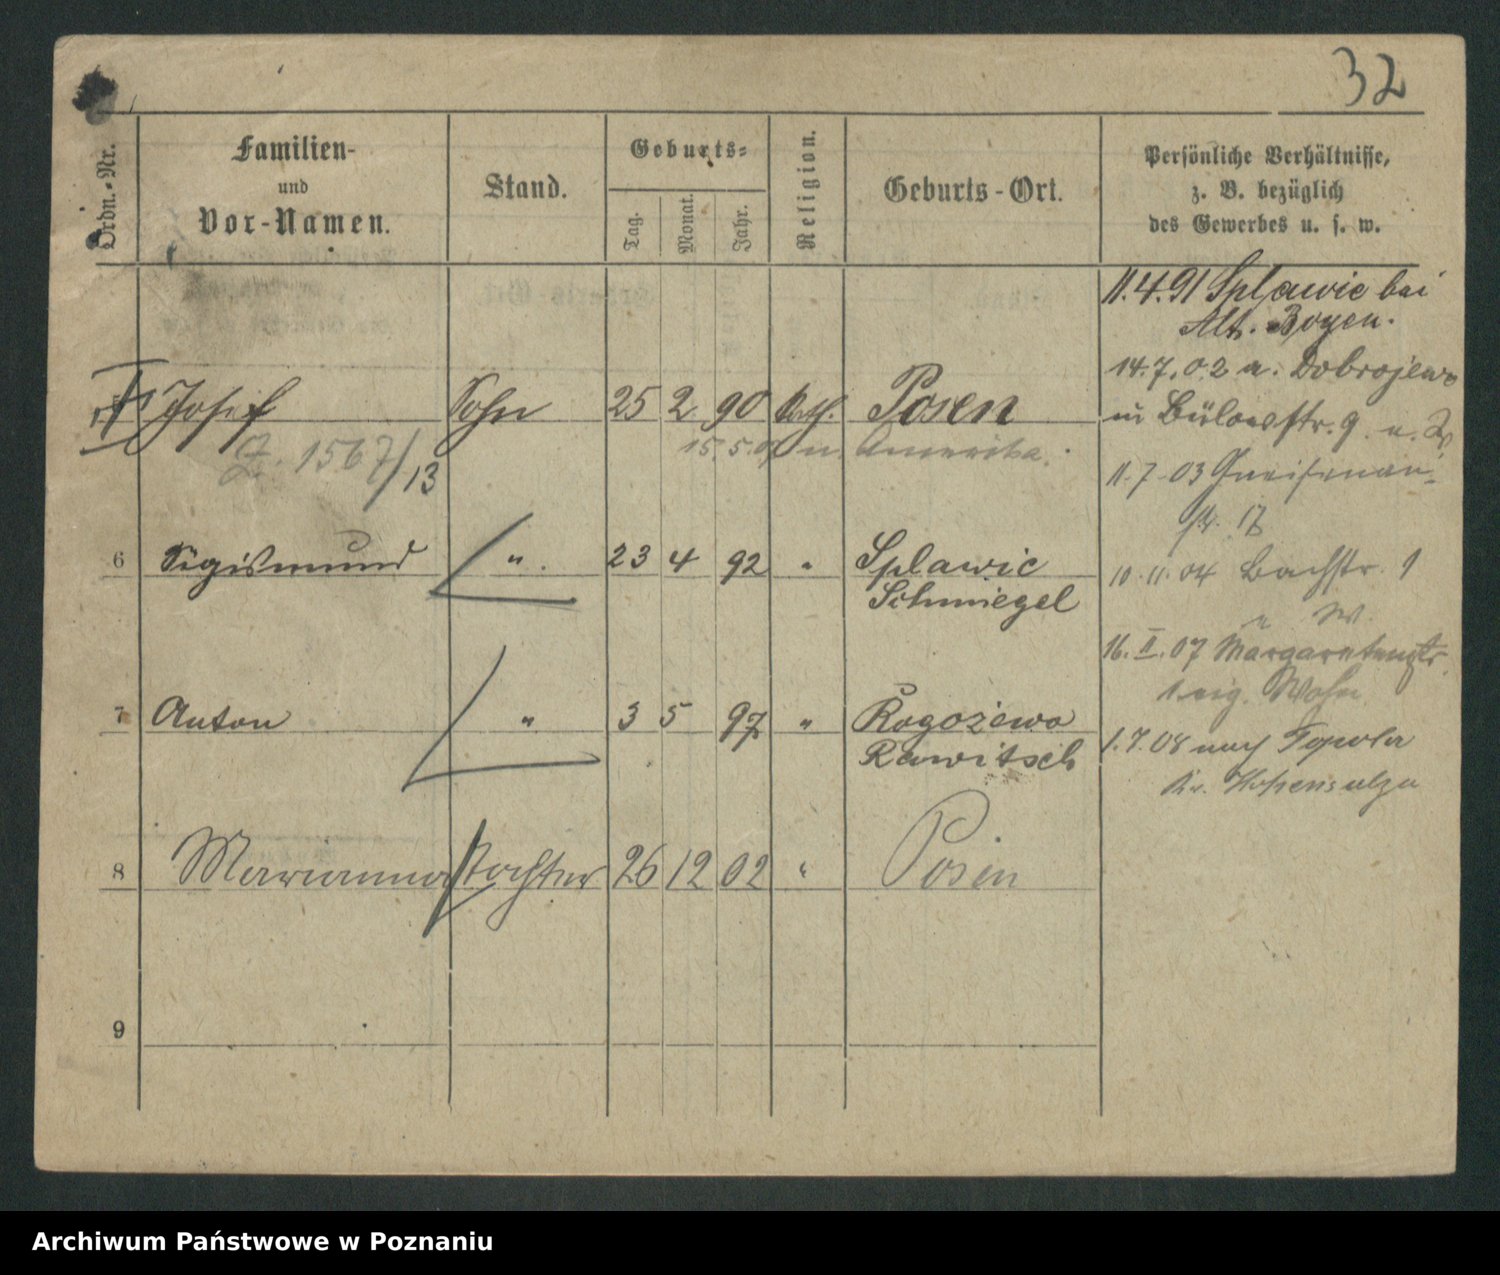 32
Ordn.-Nr.
Familien-
und
Vor-Namen.
Stand.
Geburts-
Tag.
Monat.
Jahr.
Religion.
Geburts-Ort.
Persönliche Verhältnisse,
z. B. bezüglich
des Gewerbes u. s. w.
Josef Sohn 25 2 90 kath. Posen
Z. 1567/13
15.5.07 n. Amerika.
6 Sigismund " 23 4 92 " Splawie
Schmiegel
7 Anton " 3 5 97 " Rogożewo
Rawitsch
8 Marianna Tochter 26 12 02 " Posen
9
11.4.91 Splawie bei
Alt. Boyen.
14.7.02 a. Dobrojewo
in Bülowstr. 9
11.7.03 Gneisenau-
str.
10.11.04 Bachstr. 1
16.II.07 Margaretenstr.
eig. Wohn
1.7.08 nach Topola
Kr. Hohensalza
Archiwum Państwowe w Poznaniu